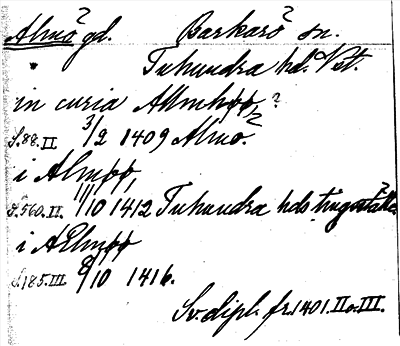 Almö? gd. Barkarö? sn.
" Tuhundra hd. Vst.
in curia Almhøø, ?
S. 88. II 3/2 1409 Almö?
i Almøø,
S. 560. II. 11/10 1412 Tuhundra hds tingsställe?
i Ælmøø
S. 185. III 8/10 1416.
Sv. dipl. fr. 1401. II o. III.